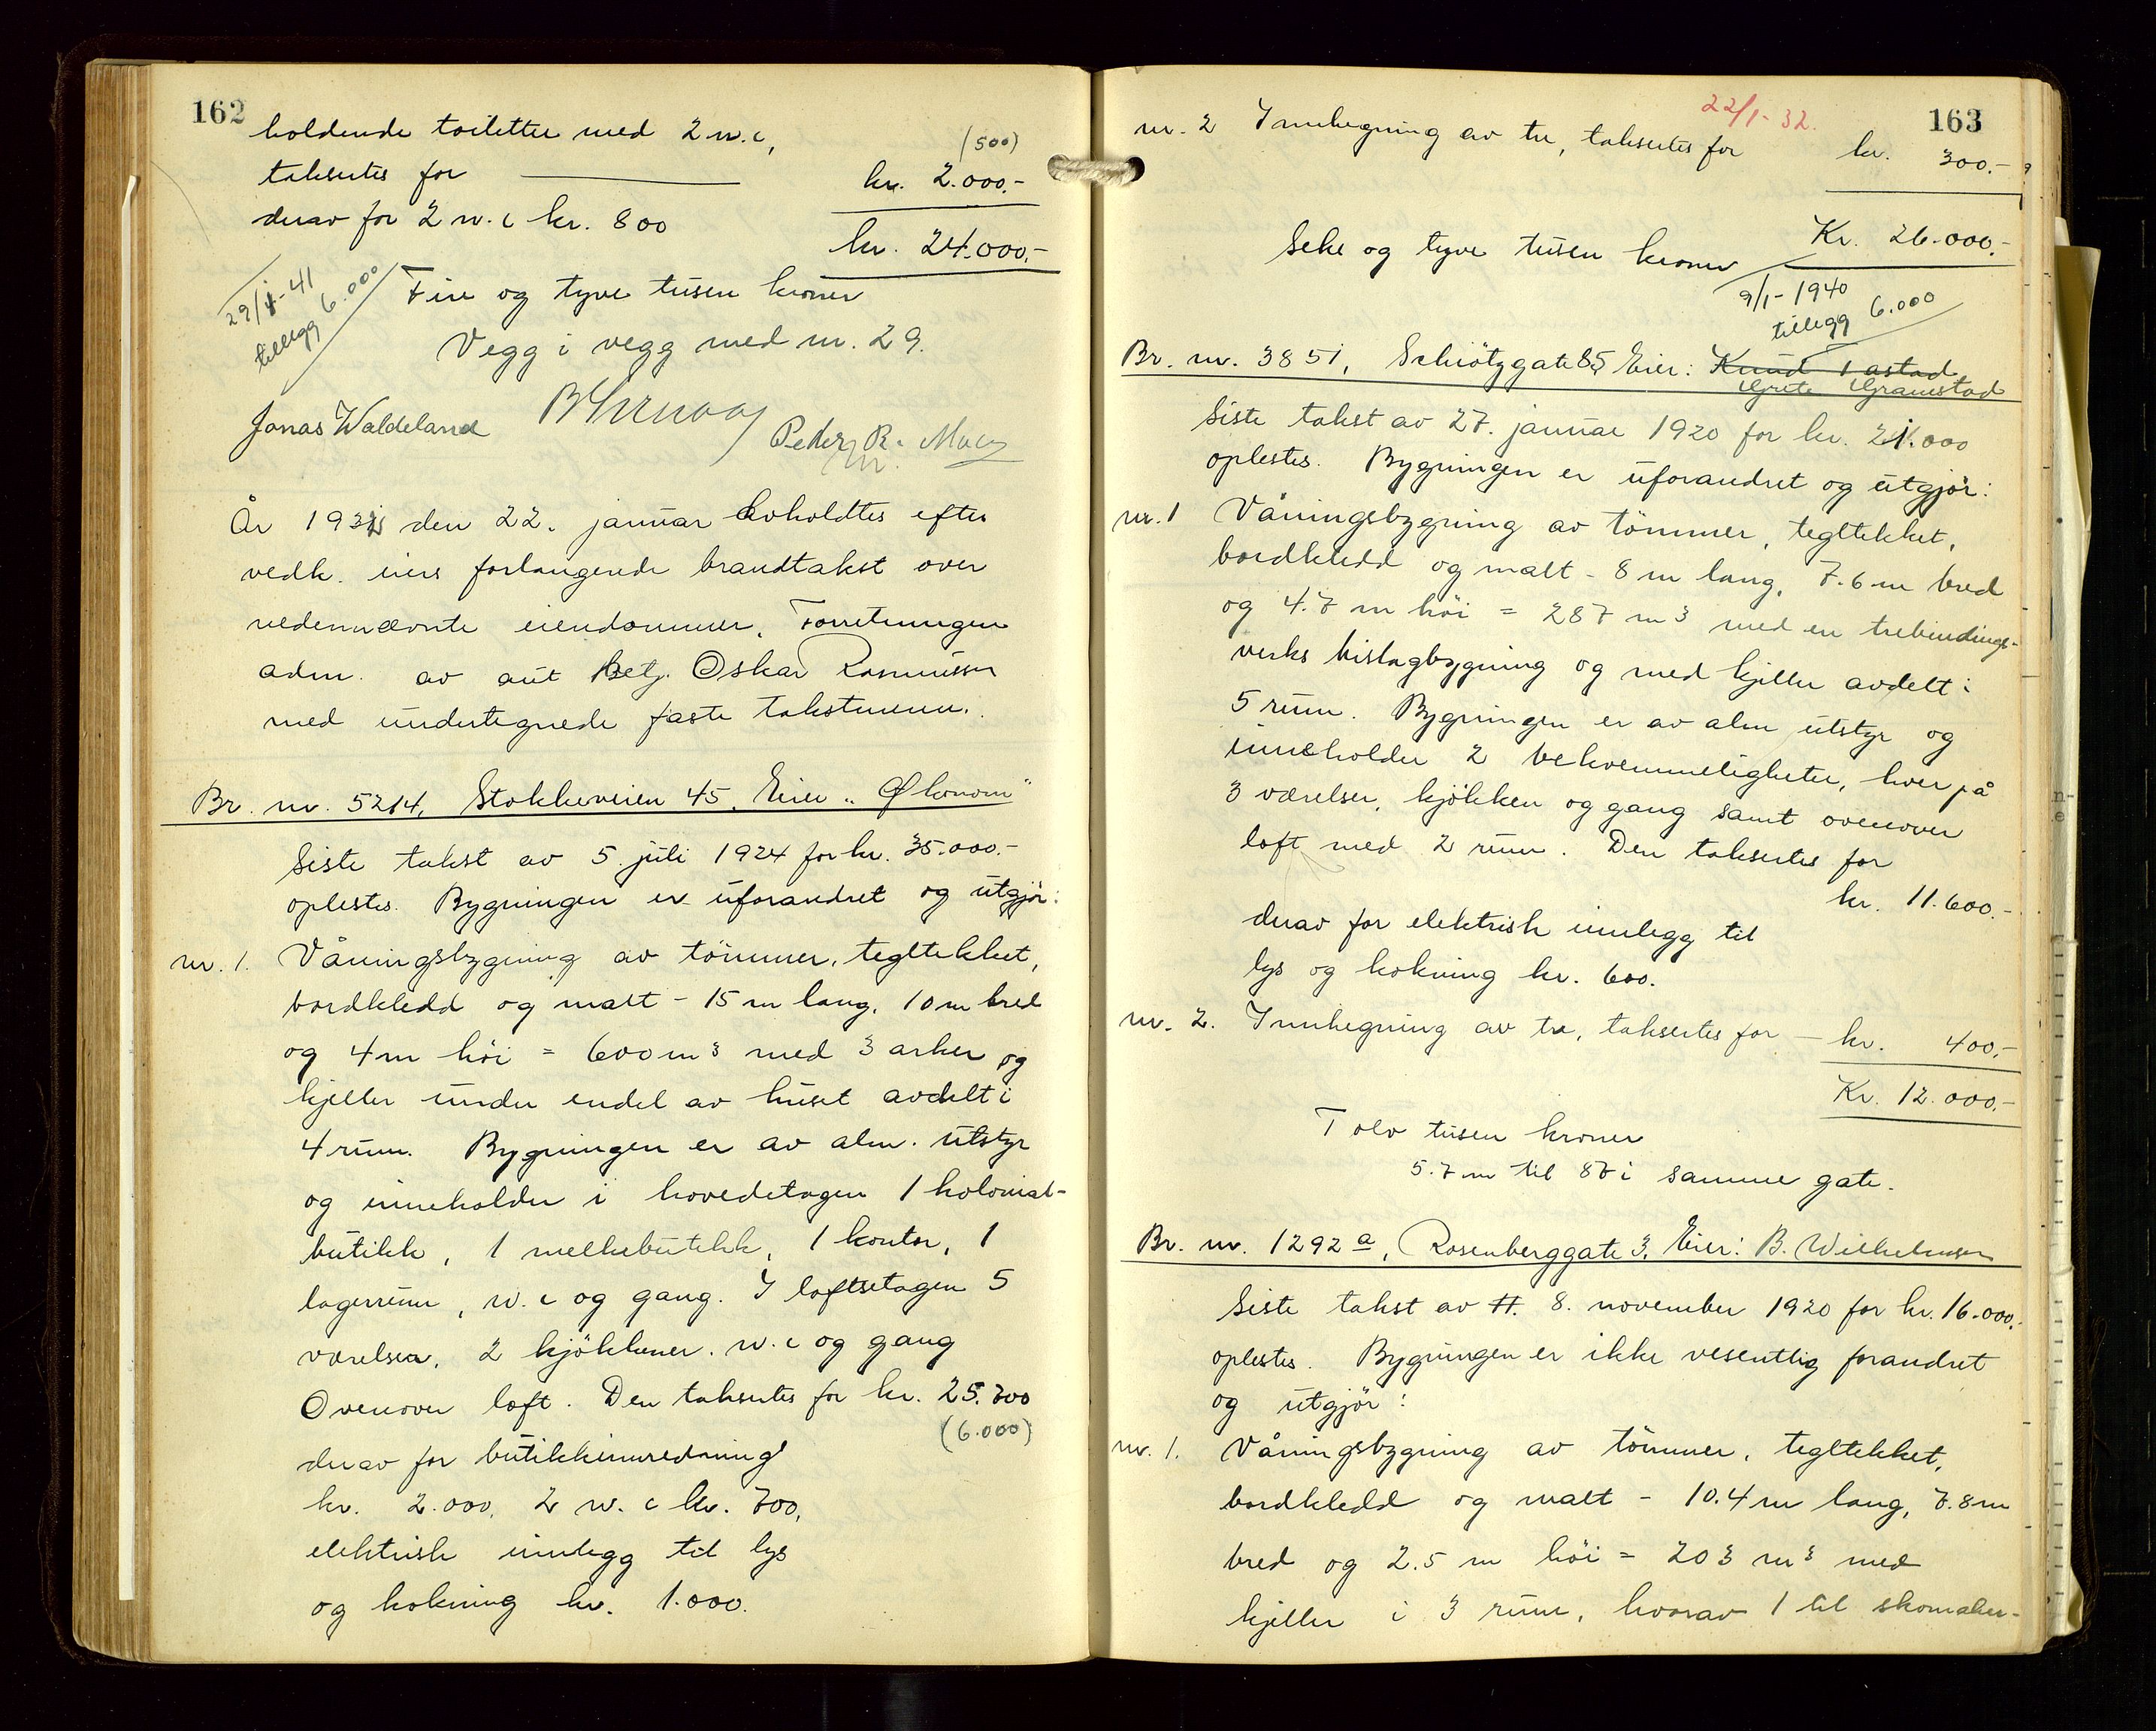 162
holdende toiletter med 2 w.c,
(500)
takseres for kr. 2.000.-
derav for 2 w.c kr. 800
kr. 24.000.-
29/1-41
tillegg 6.000
Fire og tyve tusen kroner
Vegg i vegg med nr. 29.
Jonas Waldeland
Peder R.
År 1932 den 22. januar avholdtes efter
vedk. eiers forlangende brandtakst over
nedennævnte eiendommer. Forretningen
adm. av aut. Betj. Oskar Rasmussen
med undertegnede faste takstmenn.
Br. nr. 5214, Stokkeveien 45. Eier "Økonom"
Siste takst av 5. juli 1924 for kr. 35.000.-
oplestes. Bygningen er uforandret og utgjör:
nr. 1. Våningsbygning av tömmer, tegltekket,
bordkledd og malt - 15 m lang, 10 m bred
og 4 m höi = 600 m³ med 3 arker og
kjeller under endel av huset avdelt i
4 rum. Bygningen er av alm. utstyr
og inneholder i hovedetagen 1 kolonial-
butikk, 1 melkebutikk, 1 kontor, 1
lagerrum, w.c og gang. I loftsetagen 5
værelser, 2 kjökkener. w.c og gang
Ovenover loft. Den takseres for kr. 25.700
(6.000)
derav for butikkinnredning
kr. 2.000, 2 w.c kr. 700,
elektrisk innlegg til lys
og kokning kr. 1.000.
22/1-32.
163
nr. 2 Innhegning av tre, takseres for kr. 300.-
Kr. 26.000.-
Seks og tyve tusen kroner
9/1-1940
tillegg 6.000
Br. nr. 3851, Schiötzgate 85 Eier: Knud
Grete Gramstad
Siste takst av 27. januar 1920 for kr. 21.000
oplestes. Bygningen er uforandret og utgjör:
nr. 1 Våningsbygning av tömmer, tegltekket,
bordkledd og malt - 8 m lang, 7.6 m bred
og 4.7 m höi = 287 m³ med en trebindings-
verks bislagbygning og med kjeller avdelt i
5 rum. Bygningen er av alm utstyr og
inneholder 2 bekvemmeligheter, hver på
3 værelser, kjökken og gang samt ovenover
loft med 2 rum. Den takseres for
kr. 11.600.-
derav for elektrisk innlegg til
lys og kokning kr. 600.
nr. 2. Innhegning av tre, takseres for - kr. 400.-
Kr. 12.000.-
Tolv tusen kroner
5.7 m til 87 i samme gate.
Br. nr. 1292 a, Rosenberggate 3. Eier: B. Wilhelmsen
Siste takst av 11. 8. november 1920 for kr. 16.000.-
oplestes. Bygningen er ikke vesentlig forandret
og utgjör:
nr. 1. Våningsbygning av tömmer, tegltekket,
bordkledd og malt - 10.4 m lang, 7.8 m
bred og 2.5 m höi = 203 m³ med
kjeller i 3 rum, hvorav 1 til skomaker-